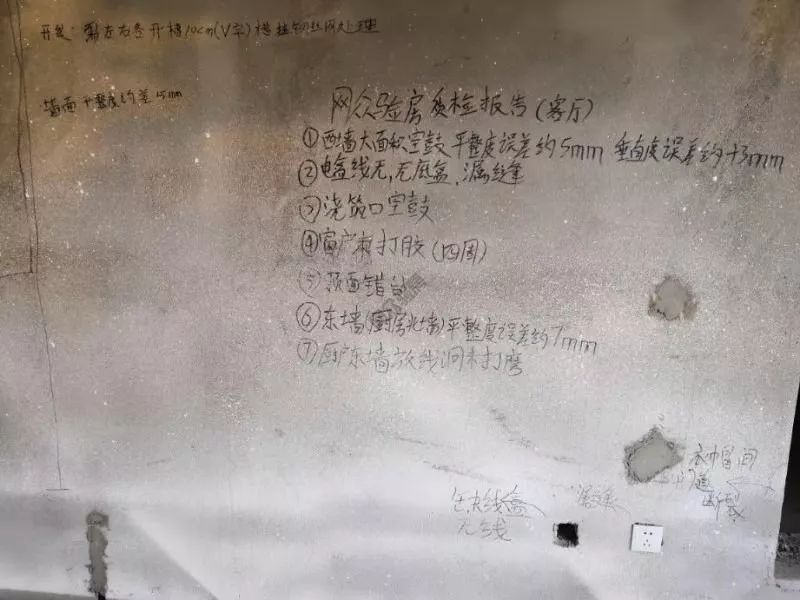 开裂: 需左右各开槽10cm(V字)槽挂钢丝网处理
墙面平整度约差15mm
网众验房质检报告(客厅)
①西墙大面积空鼓平整度误差约5mm 垂直度误差约+3mm
②电盒线无,无底盒、漏缝
③浇筑口空鼓
④窗户未打胶(四周)
⑤顶面错台
⑥东墙(厨房北墙)平整度误差约7mm
⑦厨户东墙放线洞未打磨
衣帽间
断裂
线盒
无线